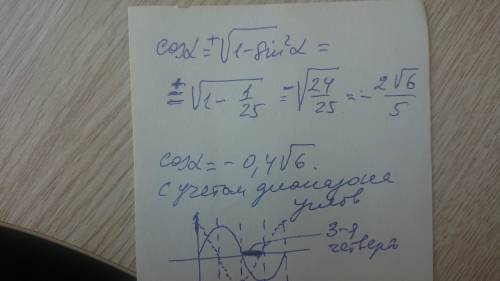 cosα=±√(1-sin²α) =
=±√(1-1/25) =-√(24/25) =-2√6/5
cosα=-0,4√6.
с учетом диапазона
углов
3-я
четверть